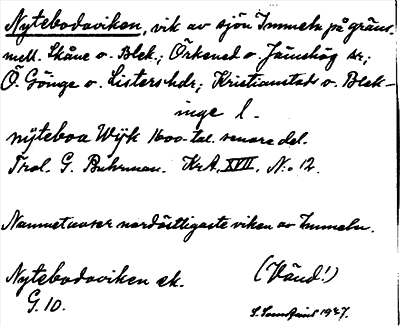 Nytebodaviken, vik av sjön Immeln på gräns.
mell. Skåne o. Blek.; Örkened o. Jämshög sr;
Ö. Göinge o. Listers hdr; Kristianstads o. Blek-
inge l.
nÿteboa Wijk 1600-tal. senare del.
Trol. G. Buhrman. KrA, XVII, N:o 12.
Namnet avser nordöstligaste viken av Immeln.
Nytebodaviken ek. (Vänd!)
G. 10. 1927.